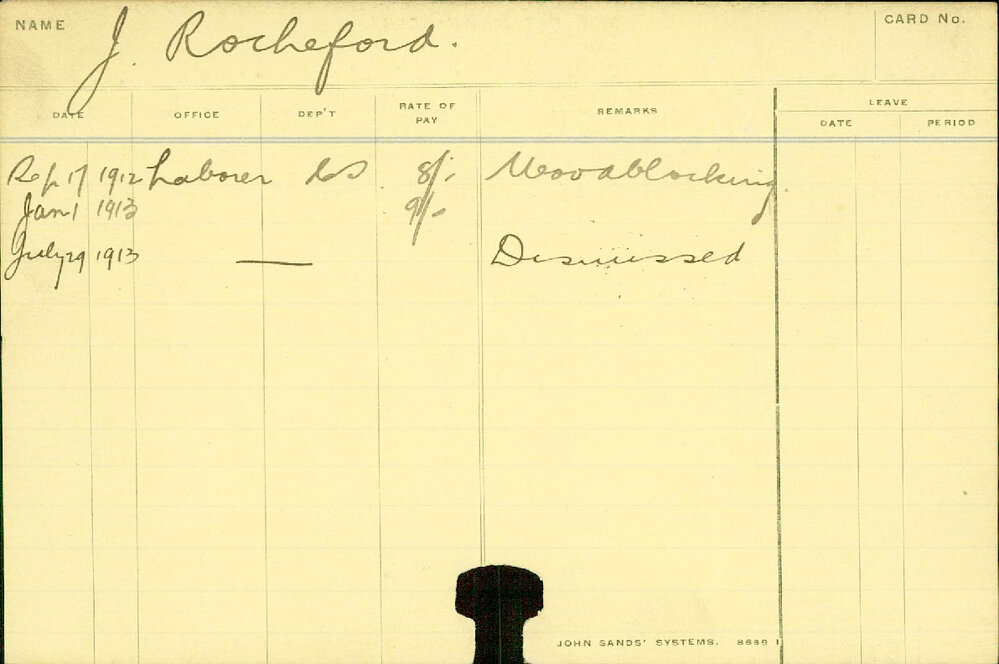 NAME J. Rocheford. CARD No.
DATE OFFICE DEP'T RATE OF PAY REMARKS LEAVE
DATE PERIOD
Sep 17 1912 Laborer 8/- Woodblocking
Jan 1 1913 9/-
July 29 1913 — Dismissed
JOHN SANDS' SYSTEMS. 8689